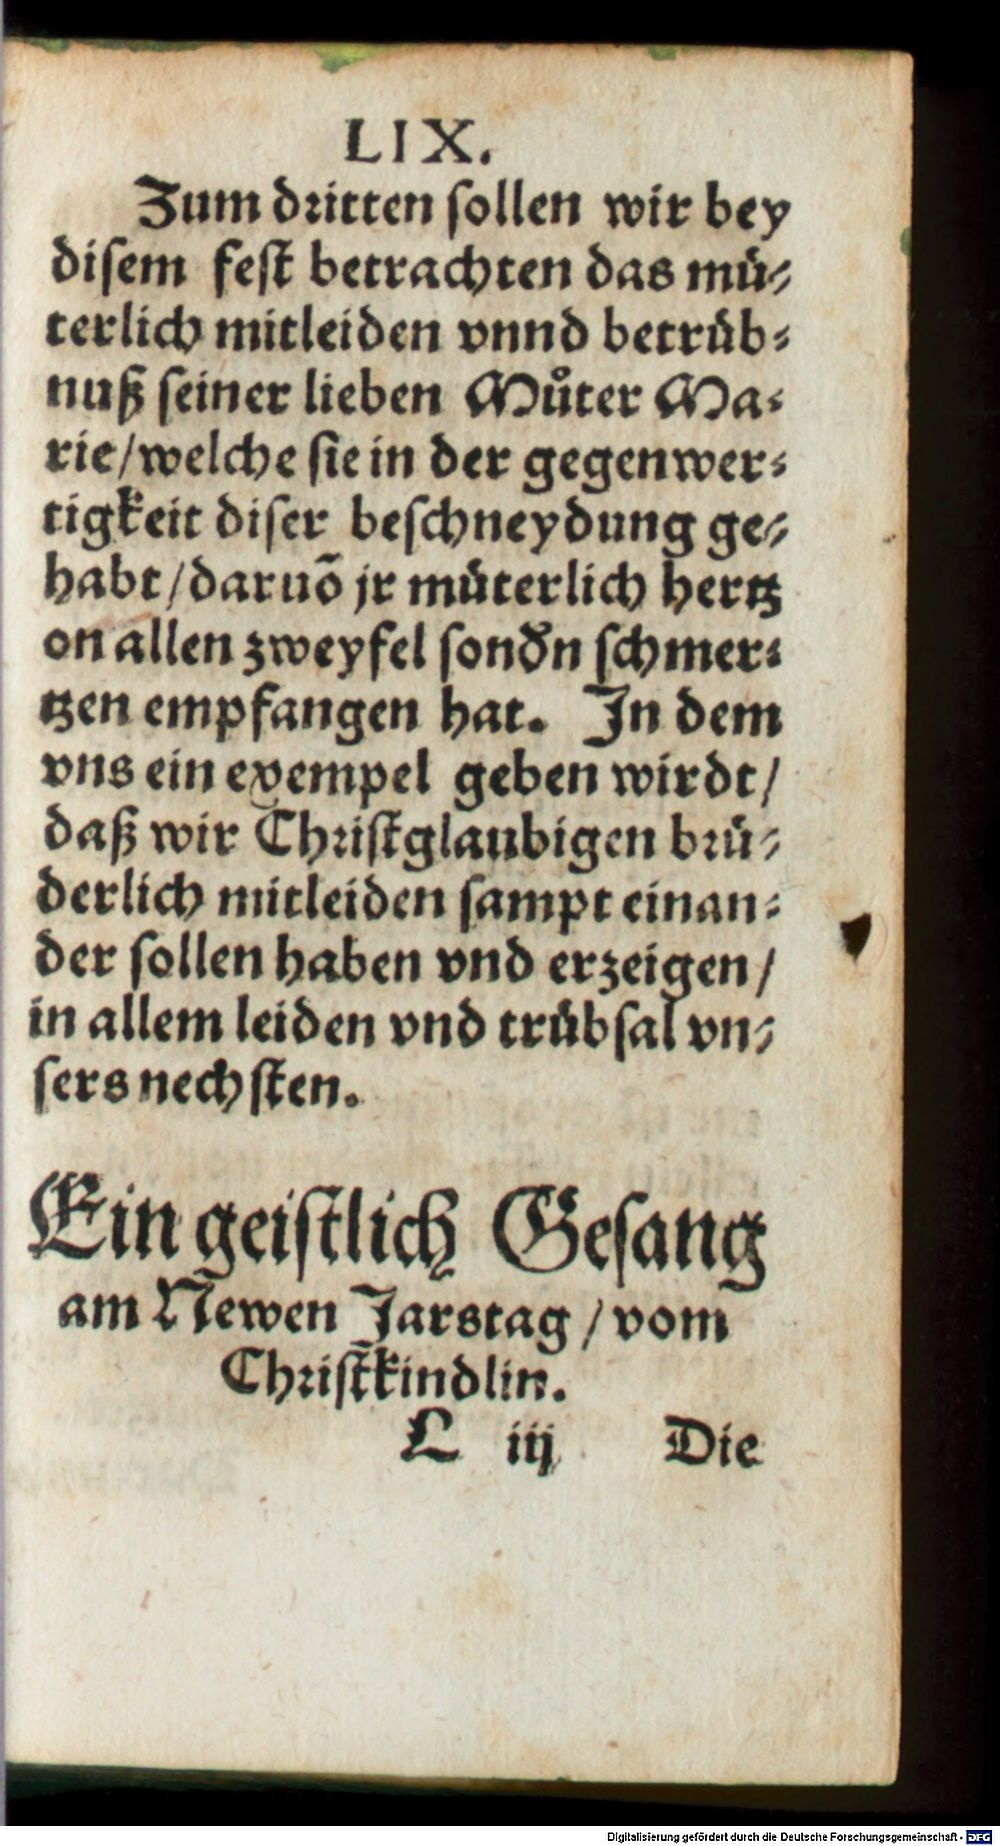 LIX.
Zum dritten sollen wir bey
disem fest betrachten das mü-
terlich mitleiden vnnd betrüb-
nuß seiner lieben Můter Ma-
rie/welche sie in der gegenwer-
tigkeit diser beschneydung ge-
habt/daruõ jr müterlich hertz
on allen zweyfel sondn schmer-
tzen empfangen hat. In dem
vns ein exempel geben wirdt/
daß wir Christglaubigen brü-
derlich mitleiden sampt einan-
der sollen haben vnd erzeigen/
in allem leiden vnd trübsal vn-
sers nechsten.
Ein geistlich Gesang
am Newen Jarstag/vom
Christkindlin.
L iij Die
Digitalisierung gefördert durch die Deutsche Forschungsgemeinschaft - DFG